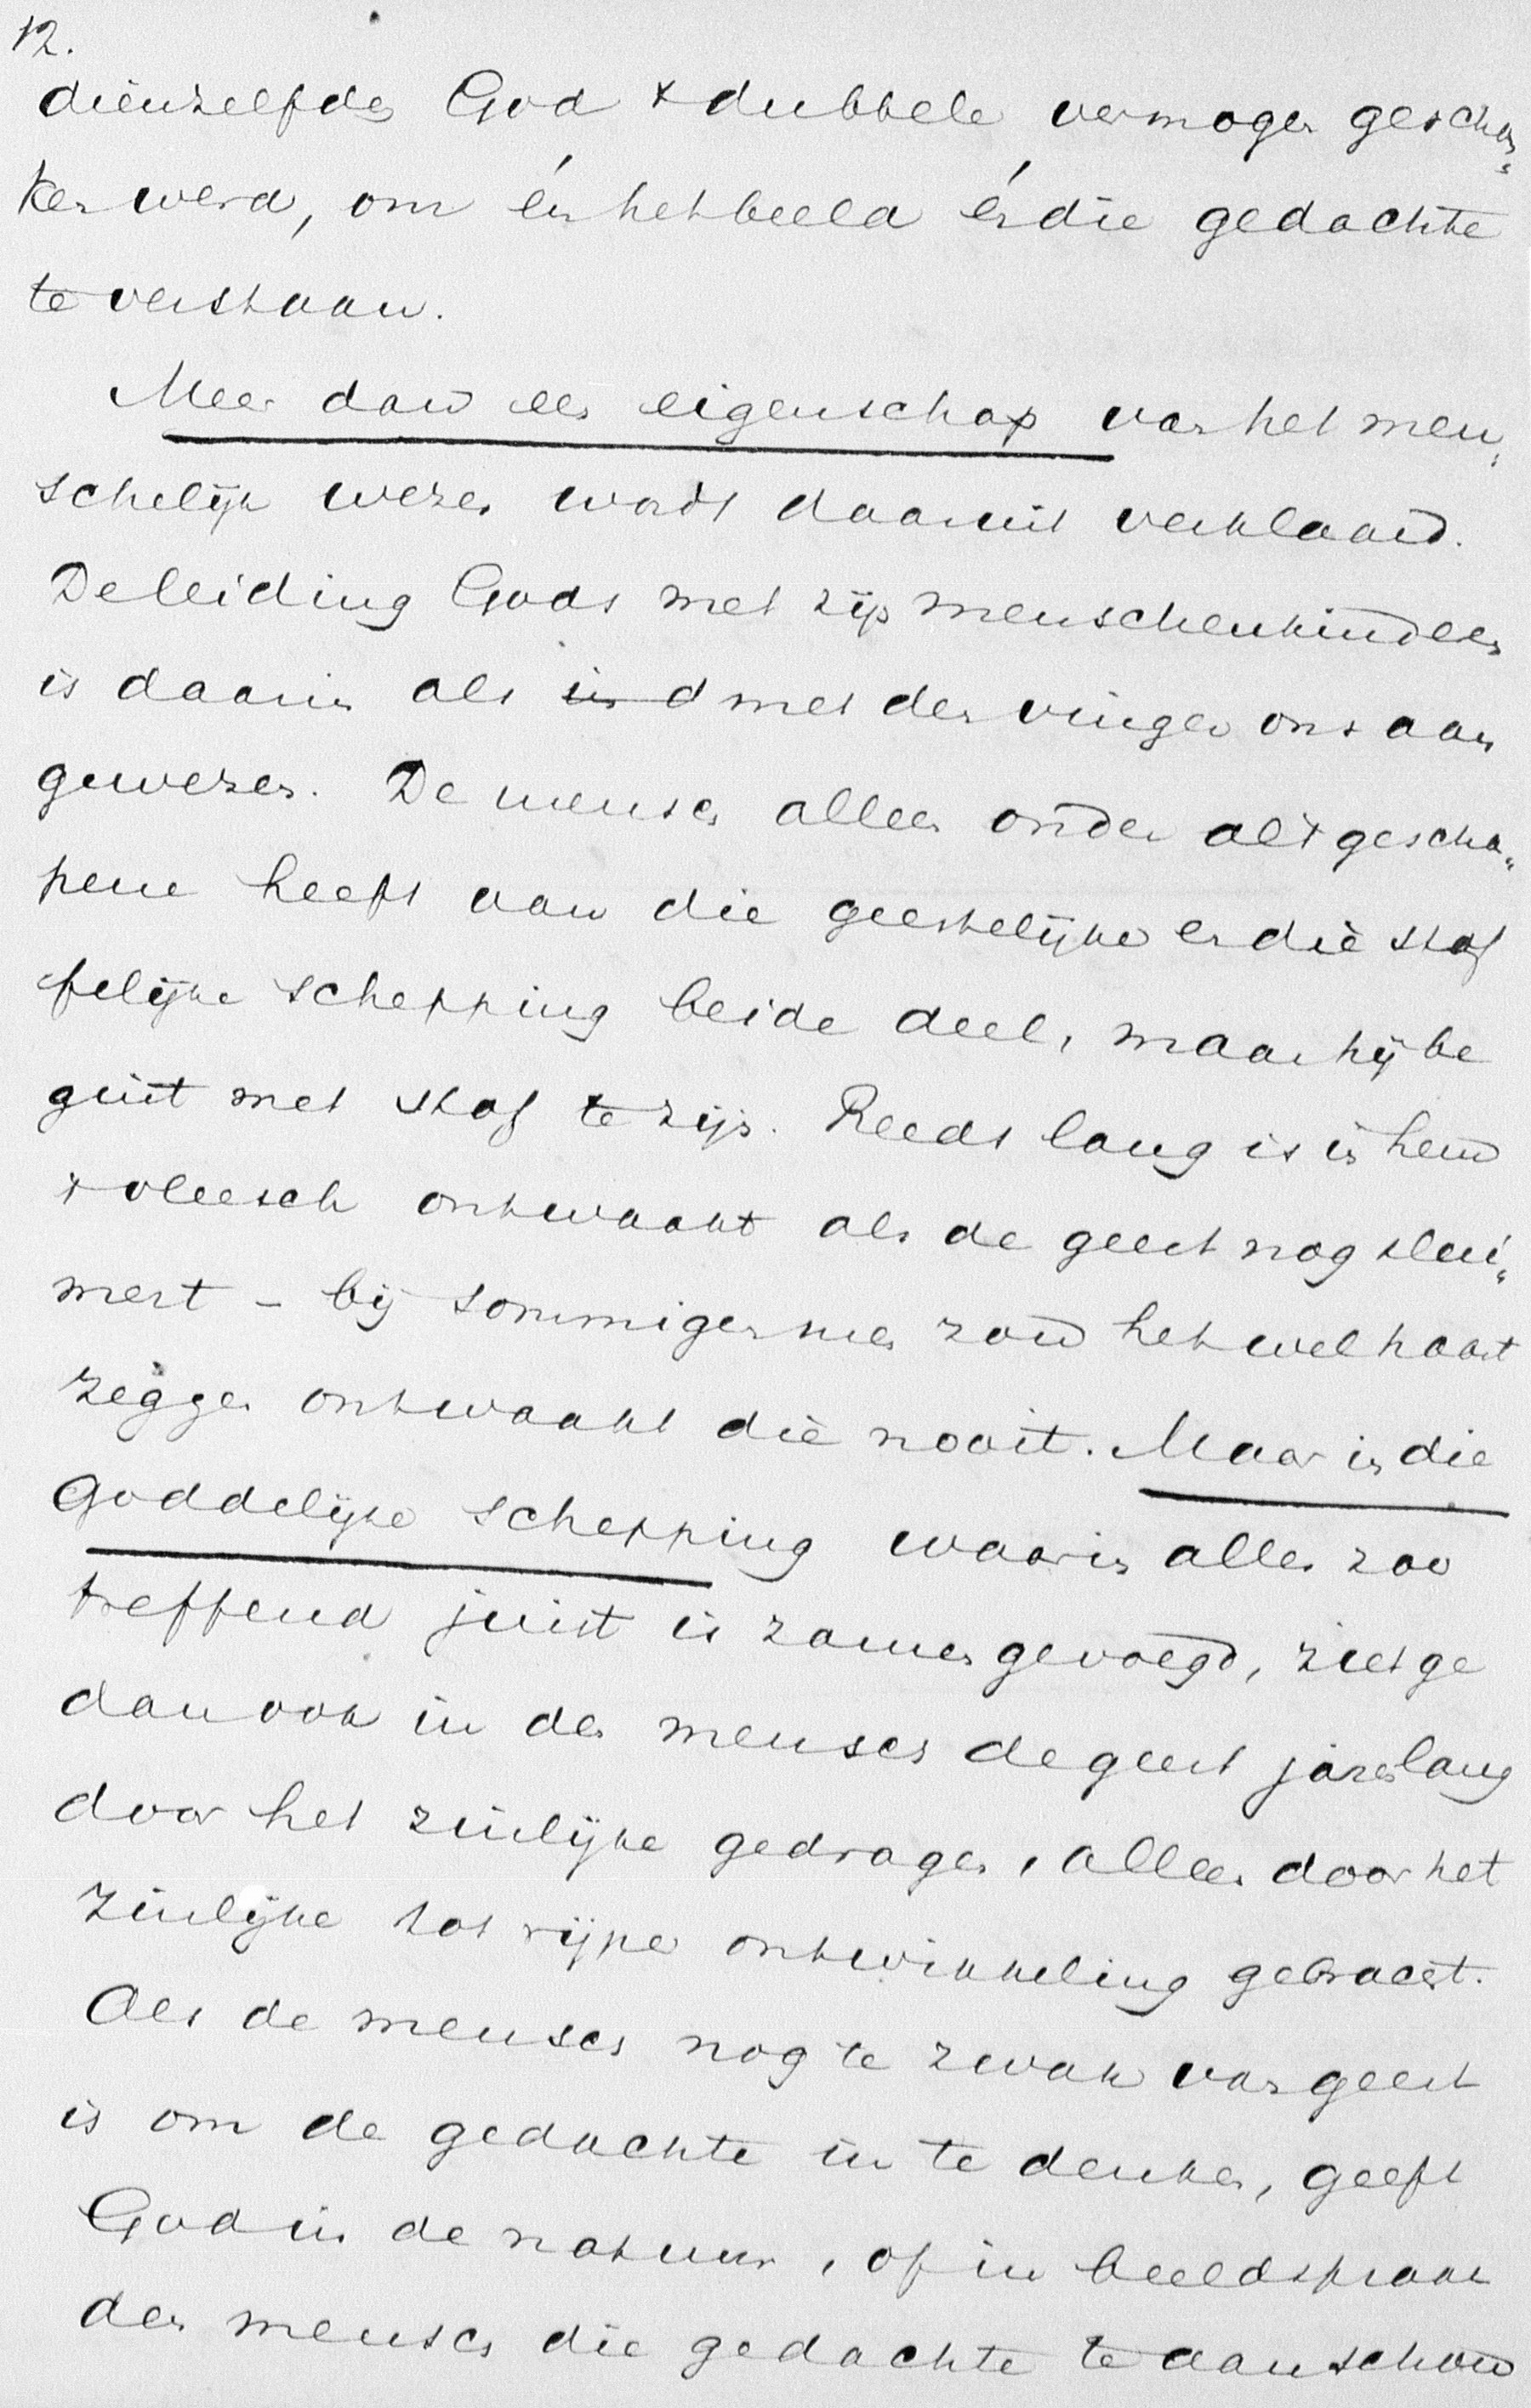 12.
dienzelfden God 't dubbele vermogen geschon-
ken werd, om én het beeld én die gedachte
te verstaan.
Meer dan een eigenschap van het men-
schelijk wezen wordt daaruit verklaard.
De leiding Gods met zijn menschenkinderen
is daarin als in d met den vinger ons aan
gewezen. De mensch alleen onder al 't gescha-
pene heeft aan die geestelijke en die stof
felijke schepping beide deel, maar hij be
gint met stof te zijn. Reeds lang is in hem
't vleesch ontwaakt als de geest nog slui-
mert - bij sommigen men zou het wel haast
zeggen ontwaakt die nooit. Maar in die
Goddelijke schepping waarin alles zoo
treffend juist is zamengevoegd, ziet ge
dan ook in den mensch de geest jarenlang
door het zinlijke gedragen, alleen door het
zinlijke tot rijpe ontwikkeling gebracht.
Als de mensch nog te zwak van geest
is om de gedachte in te denken, geeft
God in de natuur, of in beeldspraak
den mensch die gedachte te aanschouw